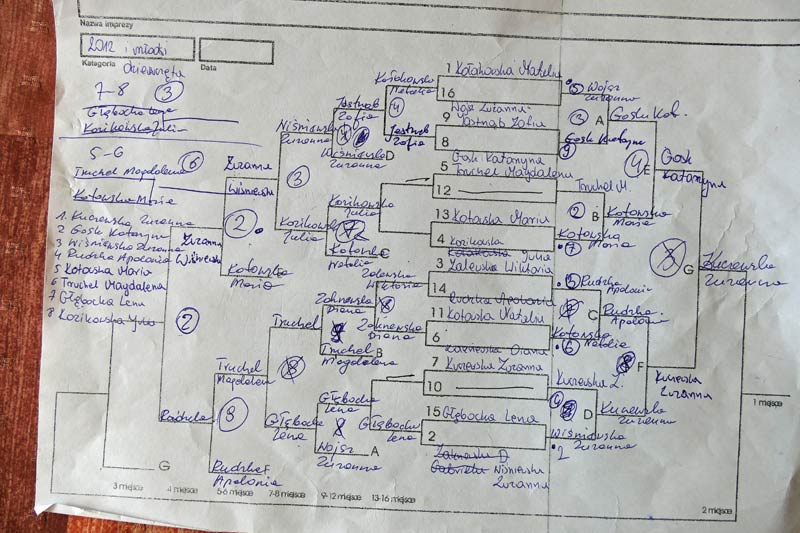 Nazwa imprezy
2012 i młodzi
Kategoria
Data
dziewczęta
7-8
3
Głębocka Lena
Korikowska Julia
5-6
Truchel Magdalena
6
Kotowska Maria
1. Kuczewska Zuzanna
2 Gosk Katarzyna
3 Wiśniewska Zuzanna
4 Rudzka Apolonia
5 Kotowska Maria
6 Truchel Magdalena
7 Głębocka Lena
8 Korikowska Julia
Zuzanna
Wiśniewska
2.
Kotowska
Maria
Zuzanna
Wiśniewska
2
Rudzka
Truchel
Magdalena
8
Rudzka
Apolonia
G
F
Wiśniewska
Zuzanna
3
Korikowska
Julia
Truchel
8
Głębocka
Lena
Jastrząb
Zofia
Wiśniewska
Zuzanna
D
Korikowska
Julia
Kotowska
Natalia
C
Zakrzewska
Diana
Truchel
Magdalena
B
Głębocka
Lena
8
Wojsz
Zuzanna
A
Kołakowska
Natalia
4
Jastrząb
Zofia
Zalewska
Wiktoria
8
Zakrzewska
Diana
Głębocka
Lena
1 Kołakowska Natalia
16
9 Wojsz Zuzanna
Jastrząb Zofia
8
Gosk Katarzyna
5 Truchel Magdalena
12
13 Kotowska Maria
4 Korikowska Julia
3 Zalewska Wiktoria
14
Rudzka Apolonia
11 Kotowska Natalia
6
Zakrzewska Diana
7 Kuczewska Zuzanna
10
15 Głębocka Lena
2
Wiśniewska
Zuzanna
Wojsz
Zuzanna
3
A
Gosk Katarzyna
9
Truchel M.
2
B
Kotowska
Maria
7
Rudzka
Apolonia
C
Kotowska
Natalia
6
Kuczewska Z.
D
Wiśniewska
Zuzanna
2
Gosk Kat.
4
E
Kotowska
Maria
Rudzka
Apolonia
F
Kuczewska
Zuzanna
Gosk
Katarzyna
3
G
Kuczewska
Zuzanna
Kuczewska
Zuzanna
1 miejsce
2 miejsce
3 miejsce
4 miejsce
5-6 miejsce
7-8 miejsce
9-12 miejsce
13-16 miejsce